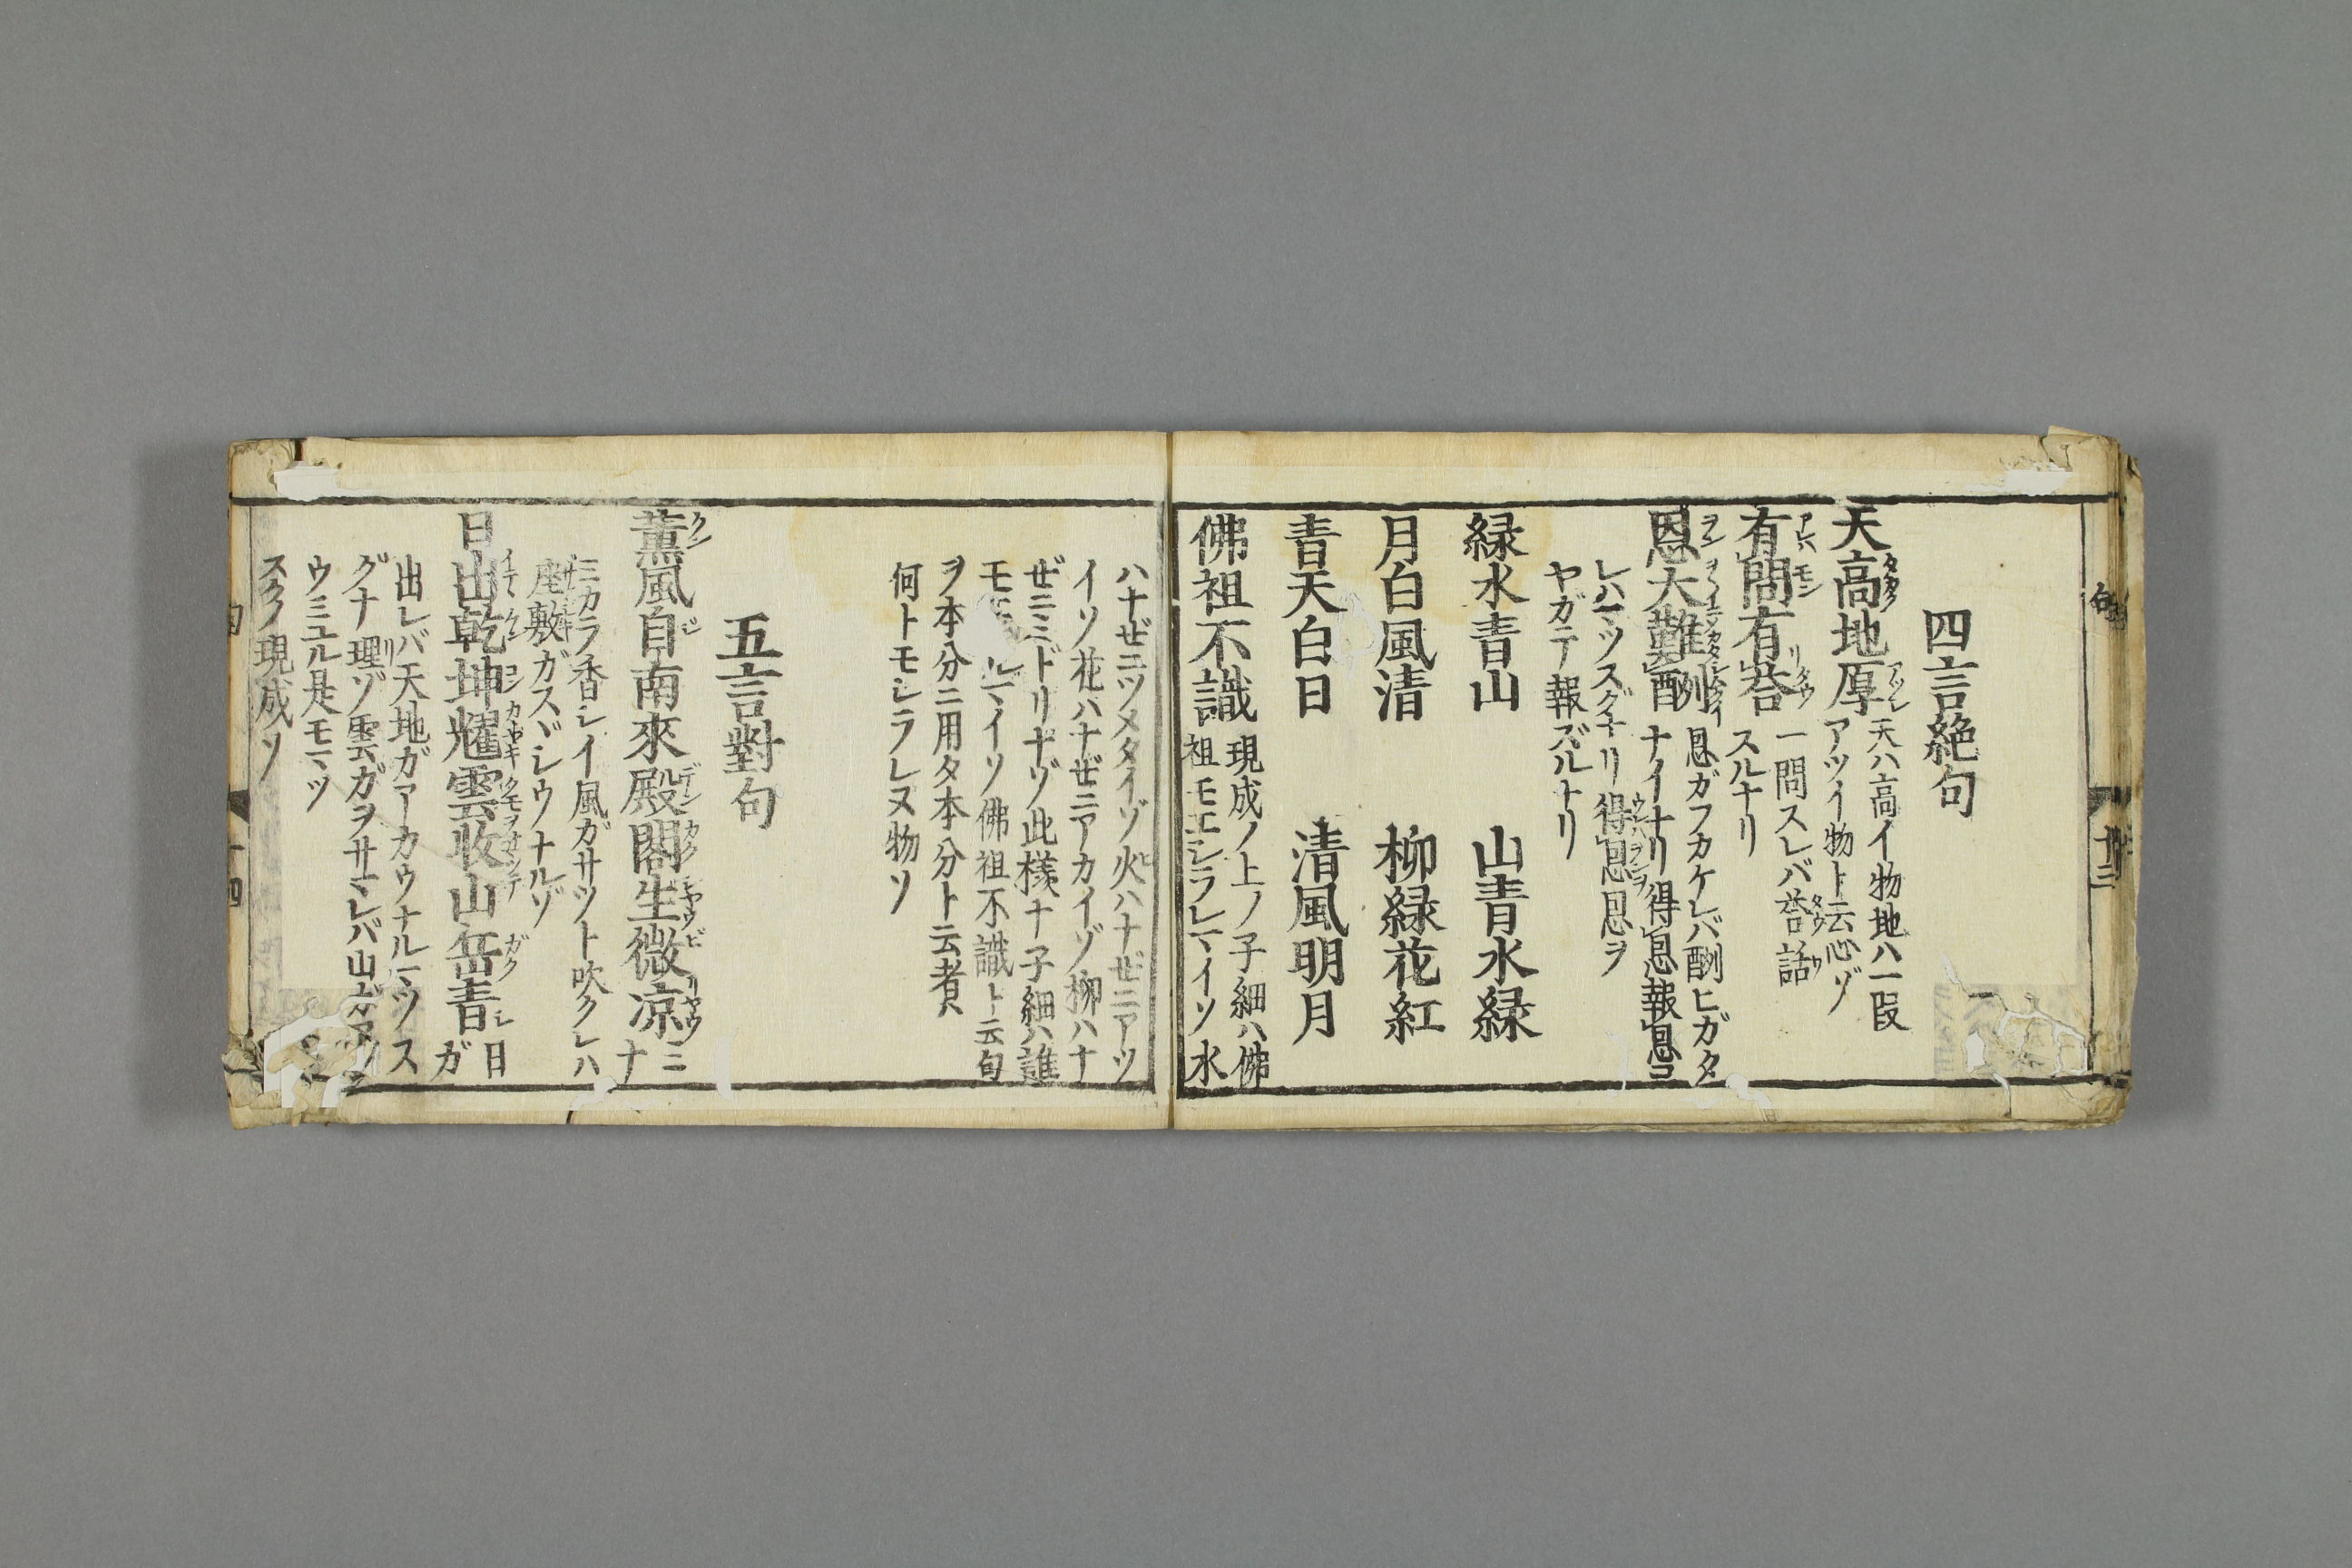 四言絶句
天高地厚 天ハ高イ物地ハ一叚
アツイ物ト云心ゾ
有問有荅 一問スレバ荅話
スルナリ
恩大難酬 恩ガフカケレバ酬ヒガタ
ナイナリ得恩報恩コ
レハマツスグナリ得恩恩ヲ
ヤガテ報ズルナリ
緑水青山 山青水緑
月白風清 柳緑花紅
青天白日 清風明月
佛祖不識 現成ノ上ノ子細ハ佛
祖モエシラレマイソ水
ハナゼニツメタイゾ火ハナゼニアツ
イソ花ハナゼニアカイゾ柳ハナ
ゼニミドリナゾ此様ナ子細ハ誰
モ レマイソ佛祖不識ト云句
ヲ本分ニ用タ本分ト云者ハ
何トモシラレヌ物ソ
五言對句
薫風自南來殿閣生微凉 ミ
ナ
ミカラ香シイ風ガサツト吹クレハ
座敷ガスヾシウナルゾ
日出乾坤耀雲收山岳青 日
ガ
出レバ天地ガアカウナルマツス
グナ理ゾ雲ガヲサマレバ山ガアヲ
ウミユル是モマツ
スグノ現成ソ
句 十三
十四